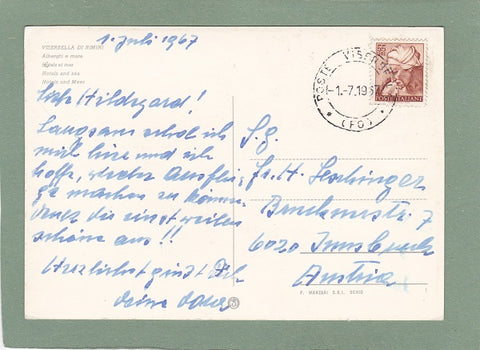 1. Juli 1967
VISERBELLA DI RIMINI
Alberghi e mare
Hotels et mer
Hotels and sea
Hotels und Meer
Liebe Hildegard!
Langsam erhol ich
mich hier und ich
hoffe,
machen zu können.
schöne aus!!
Herzlichst grüßt Dich
Deine
POSTE VISERBELLA
1-7.1967
(FO)
55
POSTE ITALIANE
S. g.
Fr. H. Leschinger
Brucknerstr. 7
6020 Innsbruck
Austria
P. MARZARI S.R.L. SCHIO